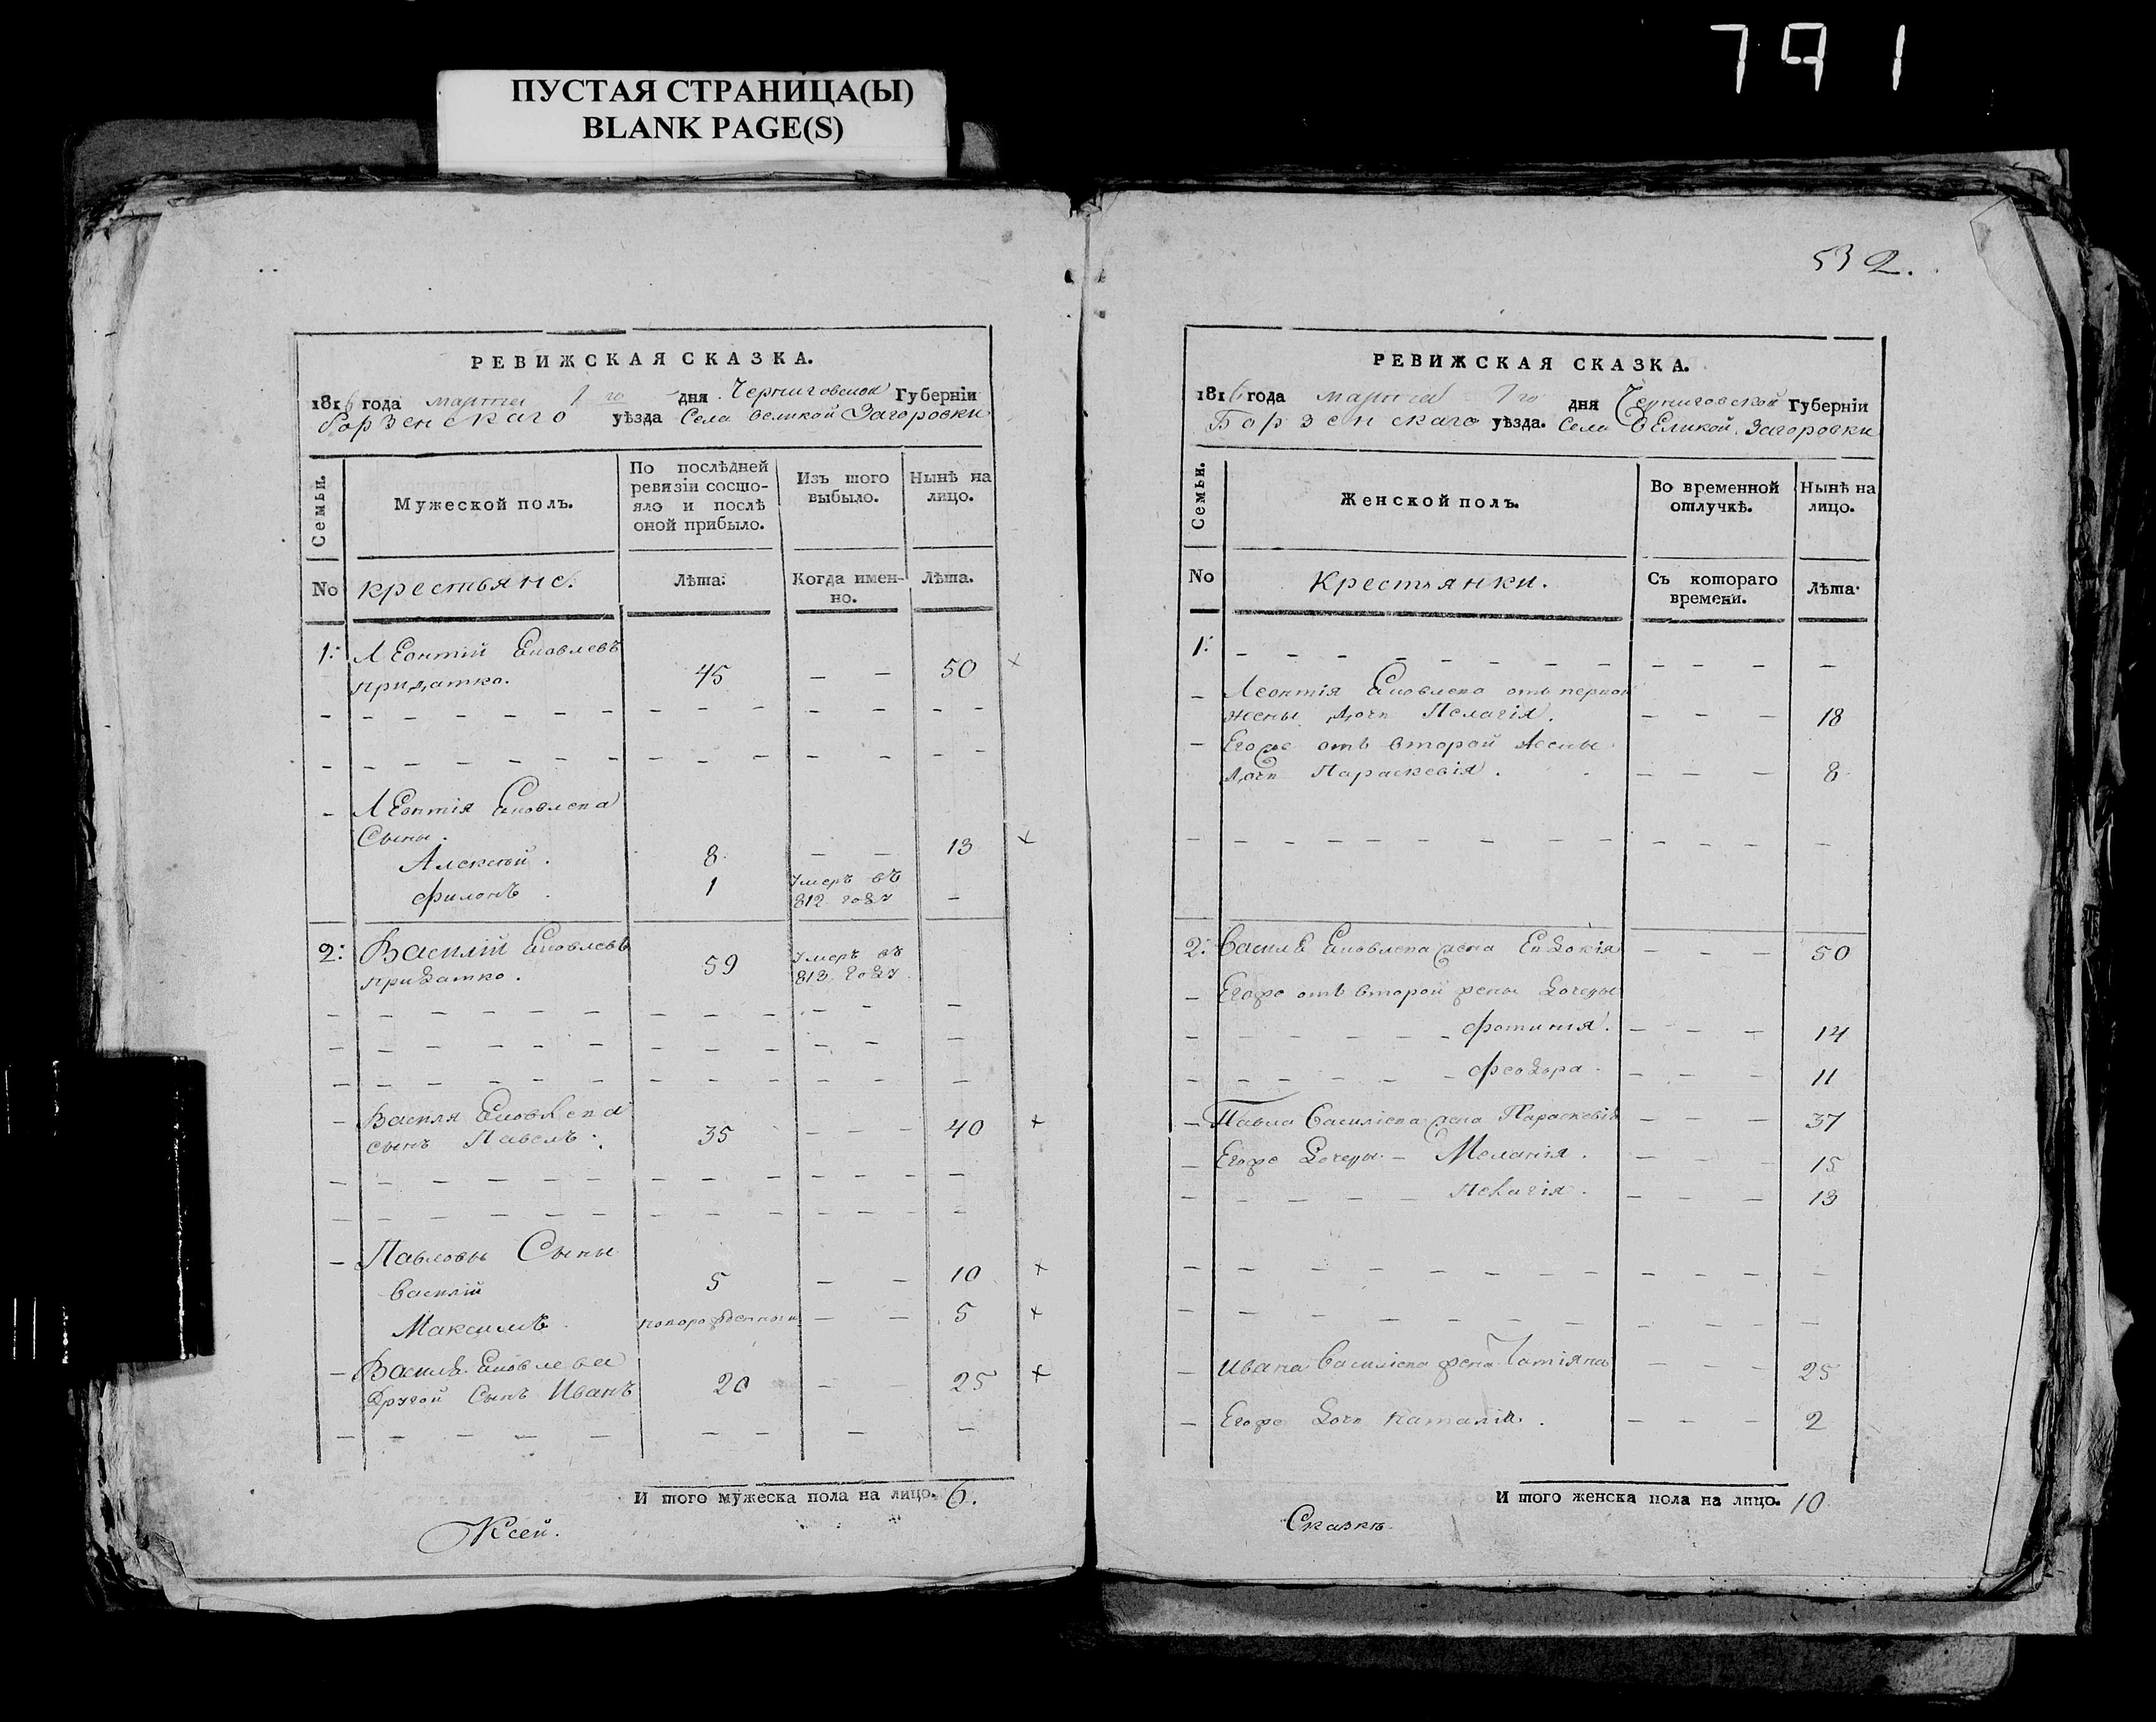 791
ПУСТАЯ СТРАНИЦА(Ы)
BLANK PAGE(S)
РЕВИЖСКАЯ СКАЗКА.
1816 года марта 1 го дня Черниговской Губерніи
Борзенскаго уѣзда Села великой Загоровки
Семьи.
Мужеской полъ.
По послѣдней ревизіи состояло и послѣ оной прибыло.
Изъ того выбыло.
Нынѣ на лицо.
No крестьяне. Лѣта: Когда именно. Лѣта.
1: Леонтій Яковлевъ
придатко. 45 — — 50 ×
— Леонтія Яковлева
Сыны.
Алексѣй. 8 — — 13 ×
филонъ. 1 Умеръ въ 812 году —
2: Василій Яковлевъ
придатко. 59 Умеръ въ 813 году.
— Василя Яковлева
сынъ Павелъ. 35 — — — 40 ×
— Павловы Сыны
василій 5 — — 10 ×
Максимъ новорожденный — — 5 ×
— Василя Яковлева
Другой Сынъ Иванъ 20 — — 25 ×
И того мужеска пола на лицо. 6.
Ксей.
532.
РЕВИЖСКАЯ СКАЗКА.
1816 года марта 1 го дня Черниговской Губерніи
Борзенскаго уѣзда. Села великой Загоровки
Семьи.
Женской полъ.
Во временной отлучкѣ.
Нынѣ на лицо.
No Крестьянки. Съ котораго времени. Лѣта:
1: — — — — — — — — — — — —
— Леонтія Яковлева отъ первой
жены дочь Пелагія. — — — 18
— Егоже отъ второй жены
дочь Параскевія. — — — 8
2: Василя Яковлева жена Евдокія — — — 50
— Егоже отъ второй жены дочери
— — — — — — фотинія. — — — 14
— — — — — — феодора. — — — 11
— Павла Василіева жена Параскевія — — 37
— Егоже дочери — Меланія. — — — 15
— — — — — — Пелагія. — — — 13
— Ивана Василіева жена Татіяна — — — 25
— Егоже дочь наталія. — — — 2
И того женска пола на лицо. 10
Сказкѣ